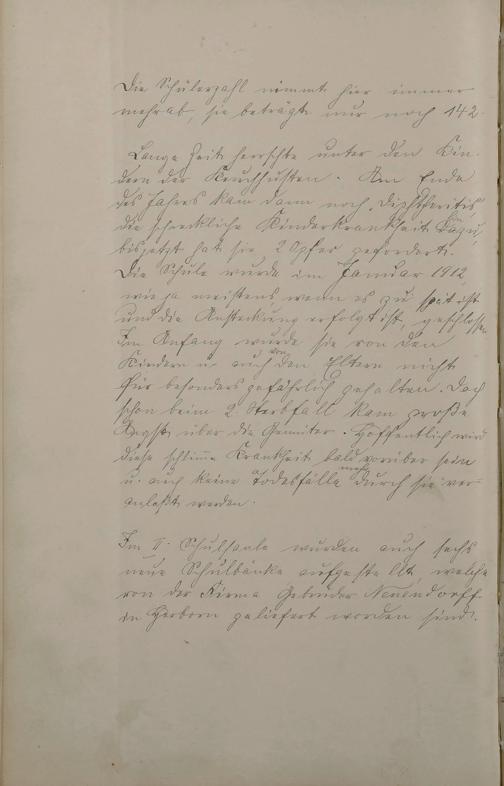 Die Schülerzahl nimmt hier immer
mehr ab, sie beträgt nur noch 142.
Lange Zeit herrschte unter den Kin-
dern der Keuchhusten. Am Ende
des Jahres kam dann noch Diphtheritis
die schreckliche Kinderkrankheit dazu,
bis jetzt hat sie 2 Opfer gefordert.
Die Schule wurde im Januar 1912,
wie ja meistens, wenn es zu spät ist
und die Ansteckung erfolgt ist, geschlossen.
Im Anfang wurde sie von den
Kindern u. auch von den Eltern nicht
für besonders gefährlich gehalten. Doch
schon beim 2. Sterbfall kam große
Angst über die Gemüter. Hoffentlich wird
diese schlimme Krankheit bald vorüber sein
u. auch keine Todesfälle mehr durch sie ver-
anlaßt werden.
Im II. Schulsaale wurden auch sechs
neue Schulbänke aufgestellt, welche
von der Firma Gebrüder Neuendorff
in Herborn geliefert worden sind.